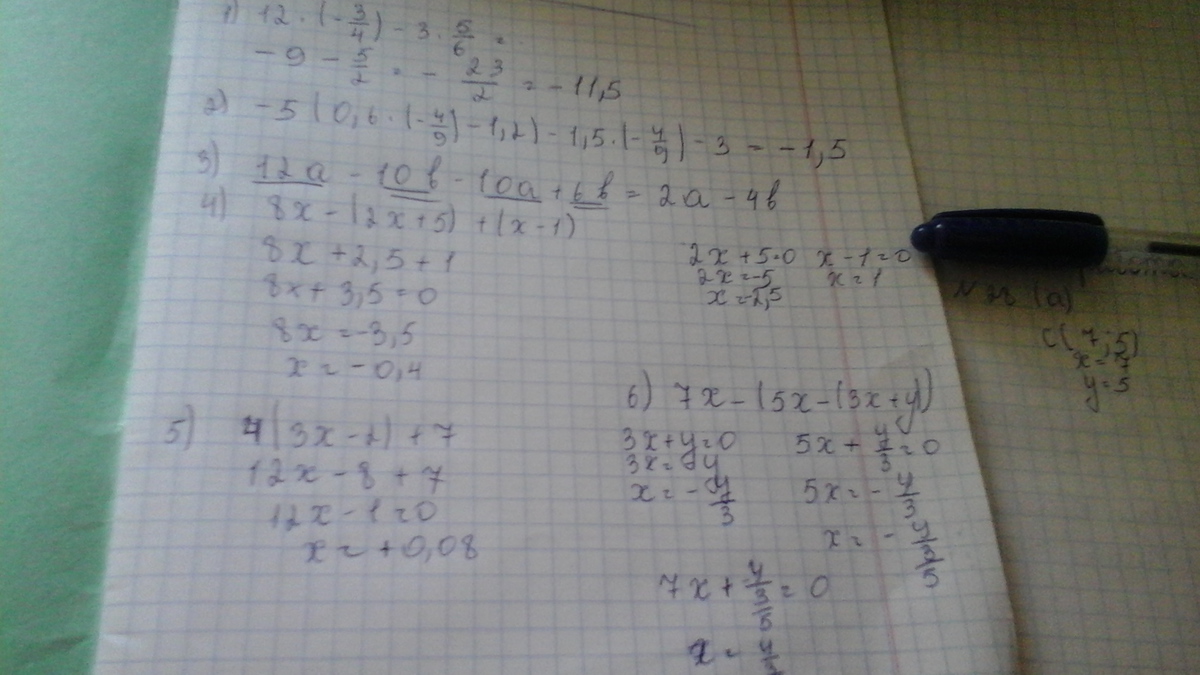 1) 12 · (-3/4) - 3 · 5/6 =
- 9 - 5/2 = - 23/2 = -11,5
2) -5 (0,6 · (-4/9) - 1,2) - 1,5 · (-4/9) - 3 = -1,5
3) 12a - 10b - 10a + 6b = 2a - 4b
4) 8x - (2x+5) + (x-1)
8x + 2,5 + 1
8x + 3,5 = 0
8x = -3,5
x = -0,4
2x + 5 = 0
2x = -5
x = -2,5
x - 1 = 0
x = 1
(a)
C(7;5)
x = 7
y = 5
5) 4(3x-2) + 7
12x - 8 + 7
12x - 1 = 0
x = +0,08
6) 7x - (5x - (3x+y))
3x + y = 0
3x = -y
x = - y/3
5x + y/3 = 0
5x = - y/3
x = - y/3/5
7x + y/3/5 = 0
x =